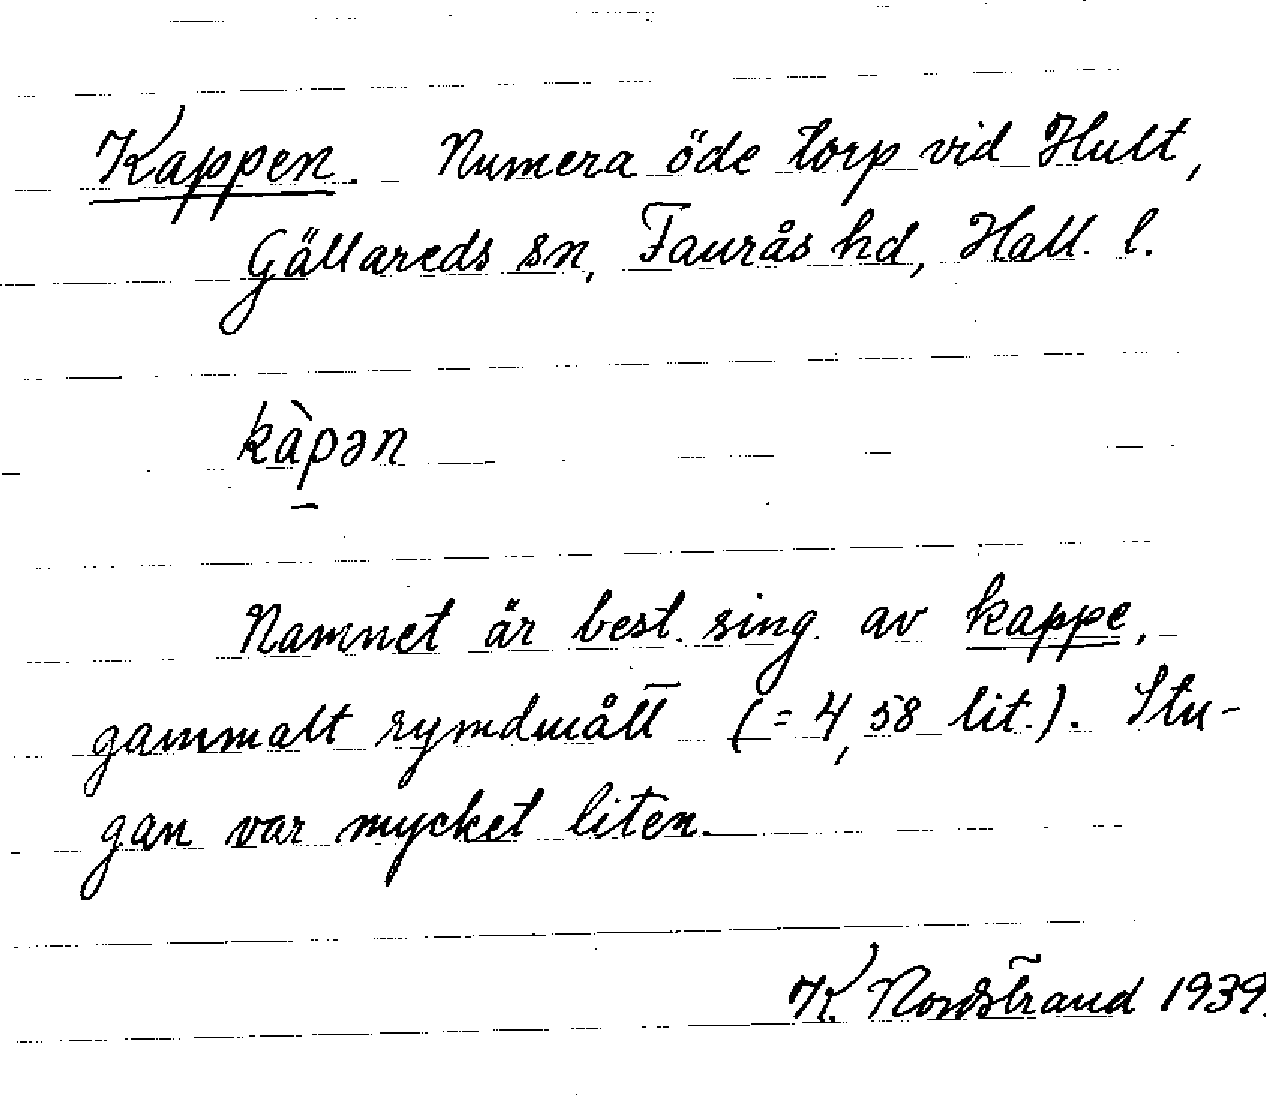 Kappen. Numera öde torp vid Hult,
Gällareds sn, Faurås hd, Hall. l.
kàpən
Namnet är best. sing. av kappe,
gammalt rymdmått (= 4,58 lit.). Stu-
gan var mycket liten.
K. Nordstrand 1939.